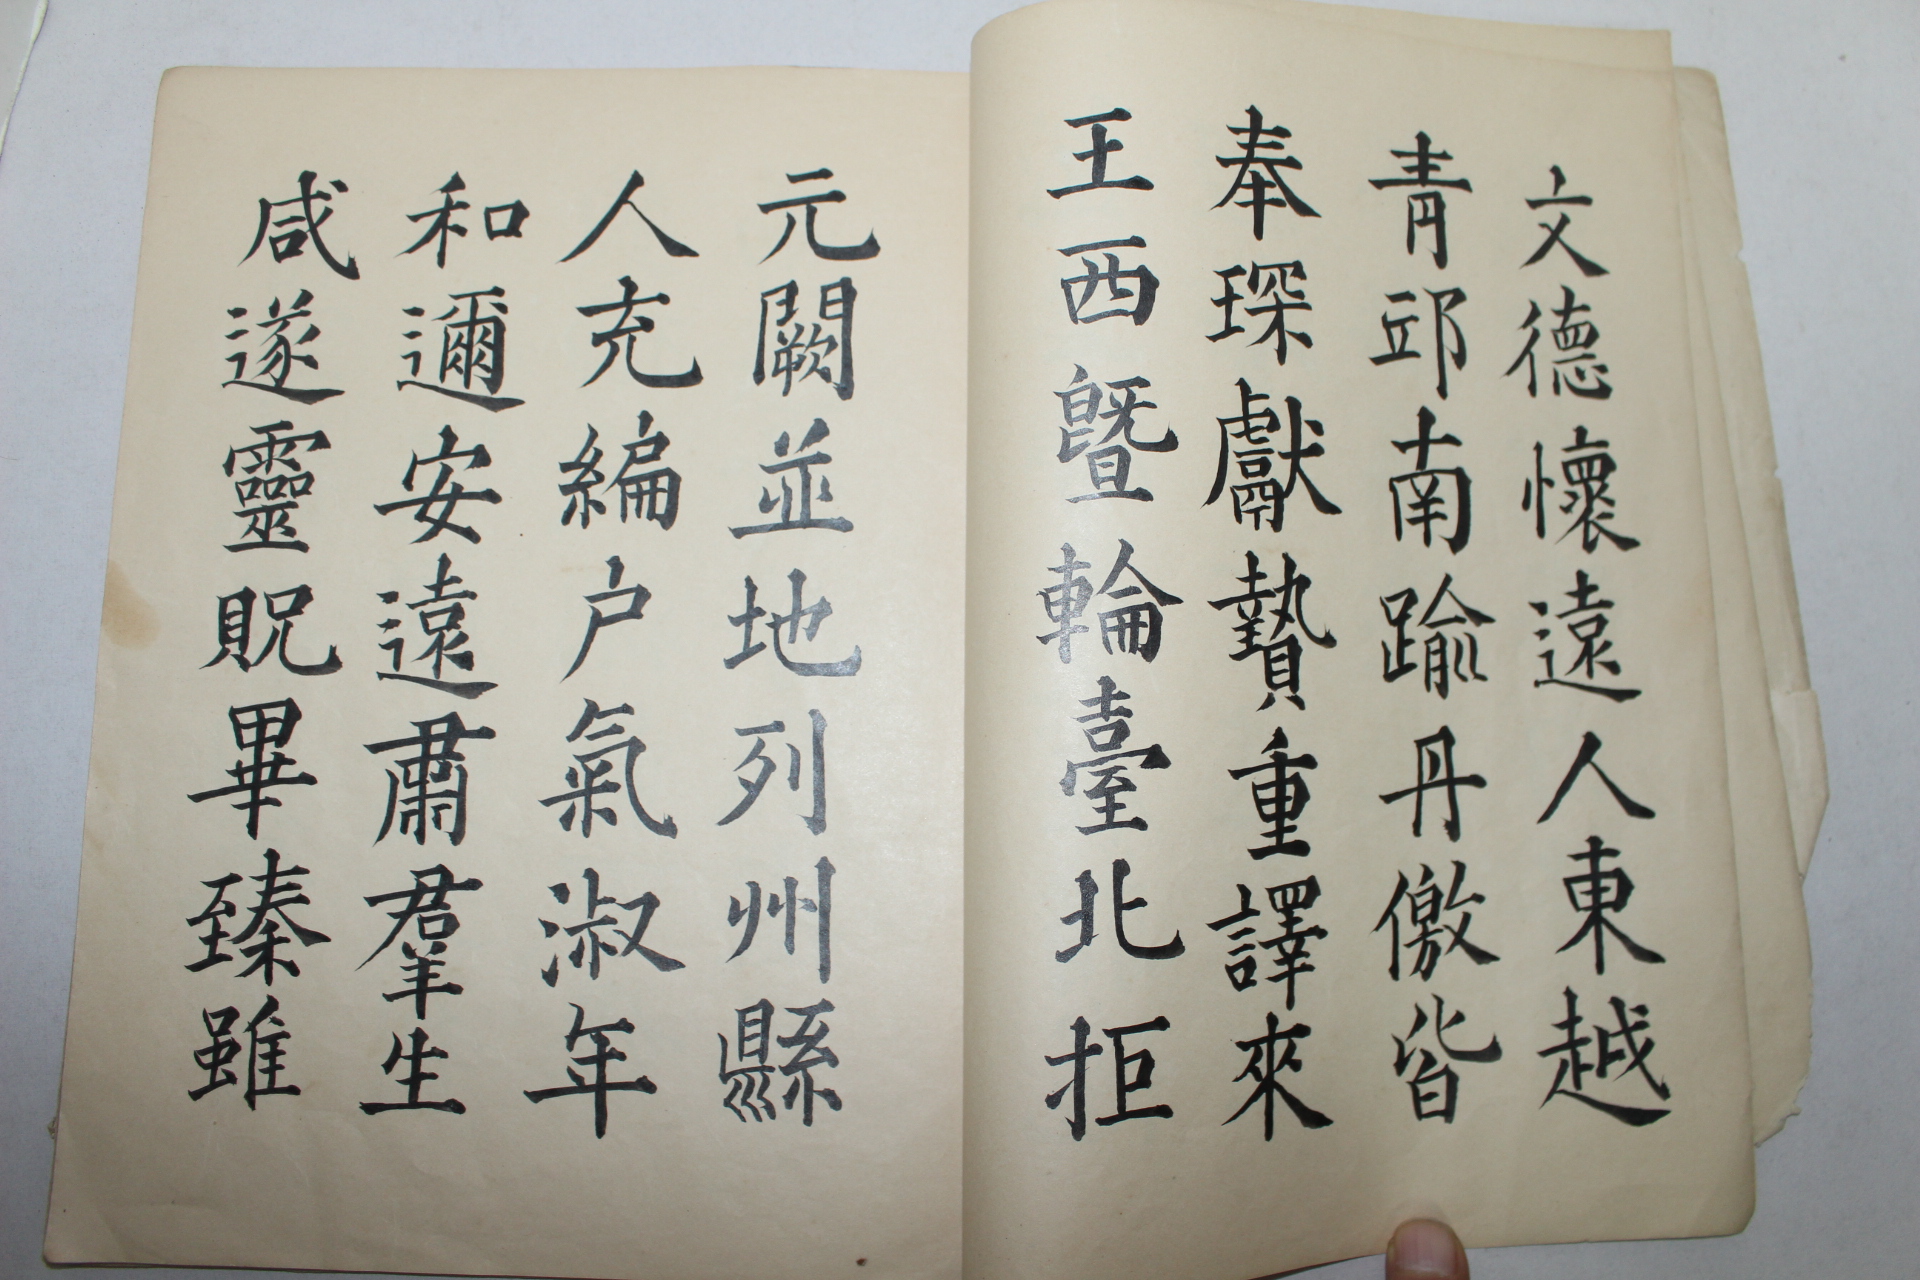 文德懷遠人東越
青邱南踰丹儌皆
奉琛獻贄重譯來
王西曁輪臺北拒
元闕並地列州縣
人充編户氣淑年
和邇安遠肅羣生
咸遂靈貺畢臻雖